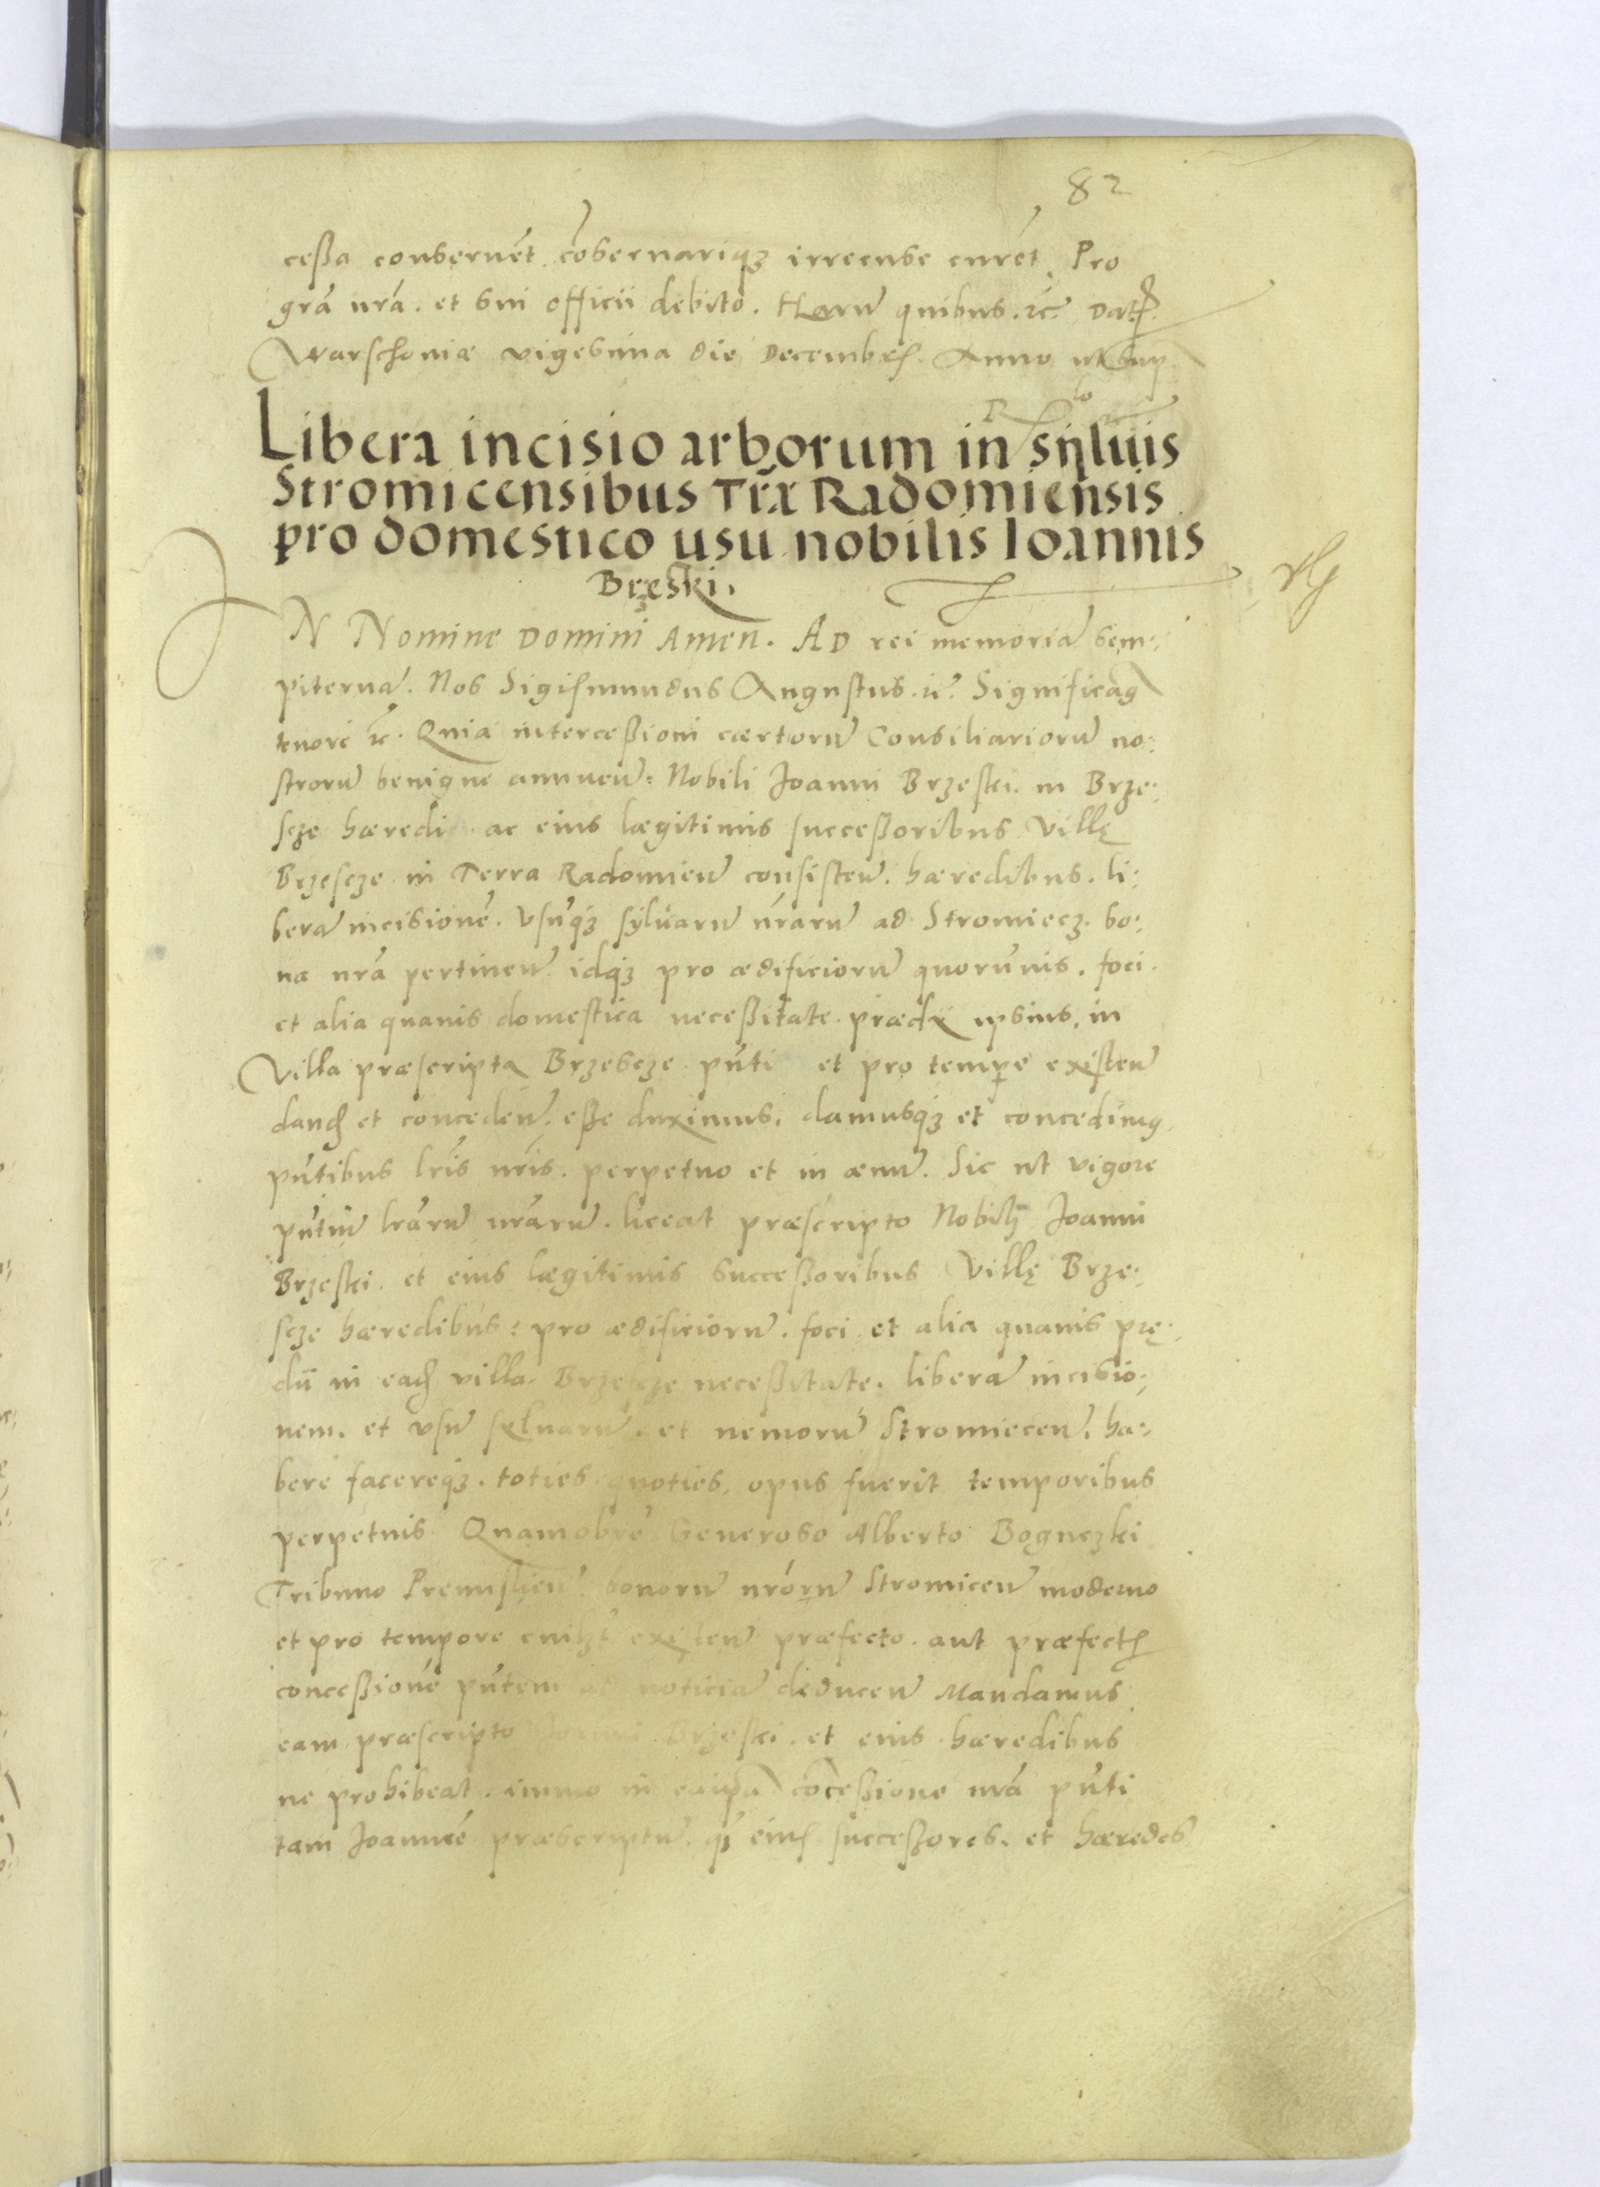 82
ceßa conservēt cōservariqz irrecuse curēt. Pro
grā nrā. et sui officii debito. Harū quibus. ec. Dat.
Warschoviæ vigesima die Decembris Anno ut sup
Libera incisio arborum in sylvis
Stromicensibus Trӕ Radomiensis
pro domestico usu nobilis Ioannis
Brzeski.
IN Nomine Domini Amen. AD rei memoriā sem-
piternā. Nos Sigismundus Augustus. ec. Significamus
tenore ec. Quia intercessioni cærtorū Consiliariorū no-
strorū benigne annuen: Nobili Joanni Brzeski. in Brze-
scze hæredi ac eius lægitimis successoribus Villę
Brzescze in Terra Radomien consisten. hæredibus. li-
berā incisionē. Usūqz sylvarū nrarū ad Stromiecz. bo-
na nrā pertinen. idqz pro ædificiorū quorūvis. foci.
et alia quavis domestica necessitate prædii ipsius, in
Villa præscripta Brzescze pūti et pro tempe existen
dand et conceden. esse duximus. damusqz et concedimus
pūtibus lris nris. perpetuo et in ævū. Sic ut vigore
pūtiū lrarū nrarū. liceat præscripto Nobili Joanni
Brzeski. et eius lægitimis successoribus Villę Brze-
scze hæredibus: pro ædificiorū. foci. et alia quavis prę-
dii in ead villa Brzescze necessitate. liberā incisio-
nem. et usū sylvarū. et nemorū Stromiecen. ha-
bere facereqz. toties quoties. opus fuerit temporibus
perpetuis Quamobrē Generoso Alberto Boguczki
Tribuno Premislien. bonorū nrorū Stromicen moderno
et pro tempore existen præfecto. aut præfectis
concessionē pūtem ad noticiā deducen Mandamus
eam præscripto Joanni Brzeski. et eius hæredibus
ne prohibeat. immo in ea ipsa cōcessione nrā pūti
tam Joannē præscriptū. qz eius successores. et hæredes